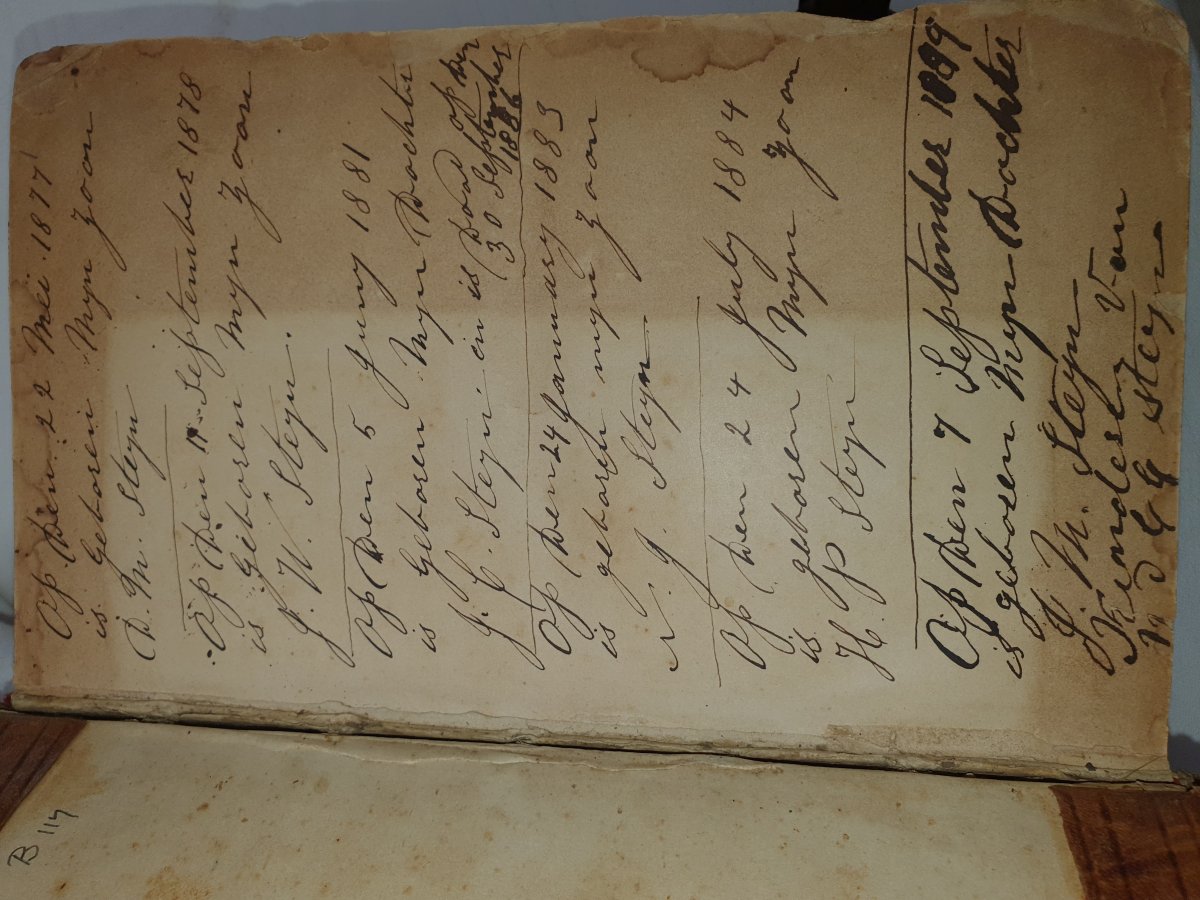 Op Den 22 Mei 1877
is Geboren Myn Zoon
D. M. Steyn
Op Den 11 September 1878
is Geboren Myn Zoon
J. W. Steyn.
Op Den 5 Juny 1881
is Geboren Myn Dochter
J. C. Steyn en is Dood op den
30 September
1886
Op Den 24 January 1883
is geboren myn Zoon
J. Steyn
Op Den 24 July 1884
is geboren Myn Zoon
H. P Steyn
Op Den 7 September 1889
is geboren Myn Dochter
J. M. Steyn
Kinderen Van
Steyn
B 114